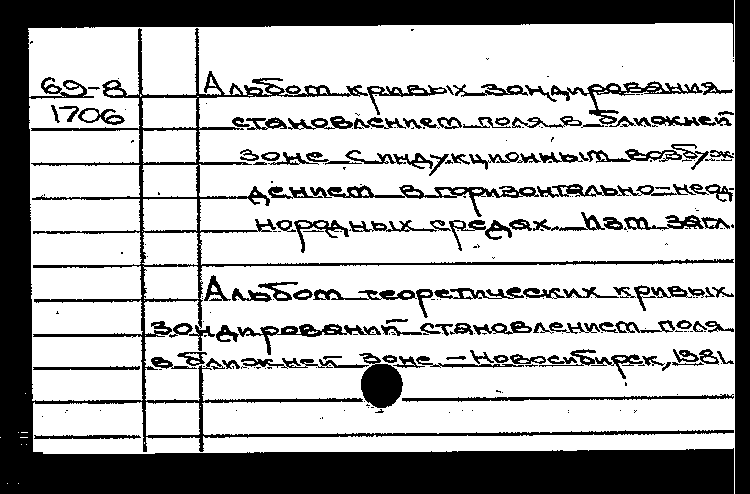 69-8 Альбом кривых зондирования
1706 становлением поля в ближней
зоне с индукционным возбуж-
дением в горизонтально-неод-
нородных средах. Паз. загл.
Альбом теоретических кривых
зондирований становлением поля
в ближней зоне. - Новосибирск, 1981.